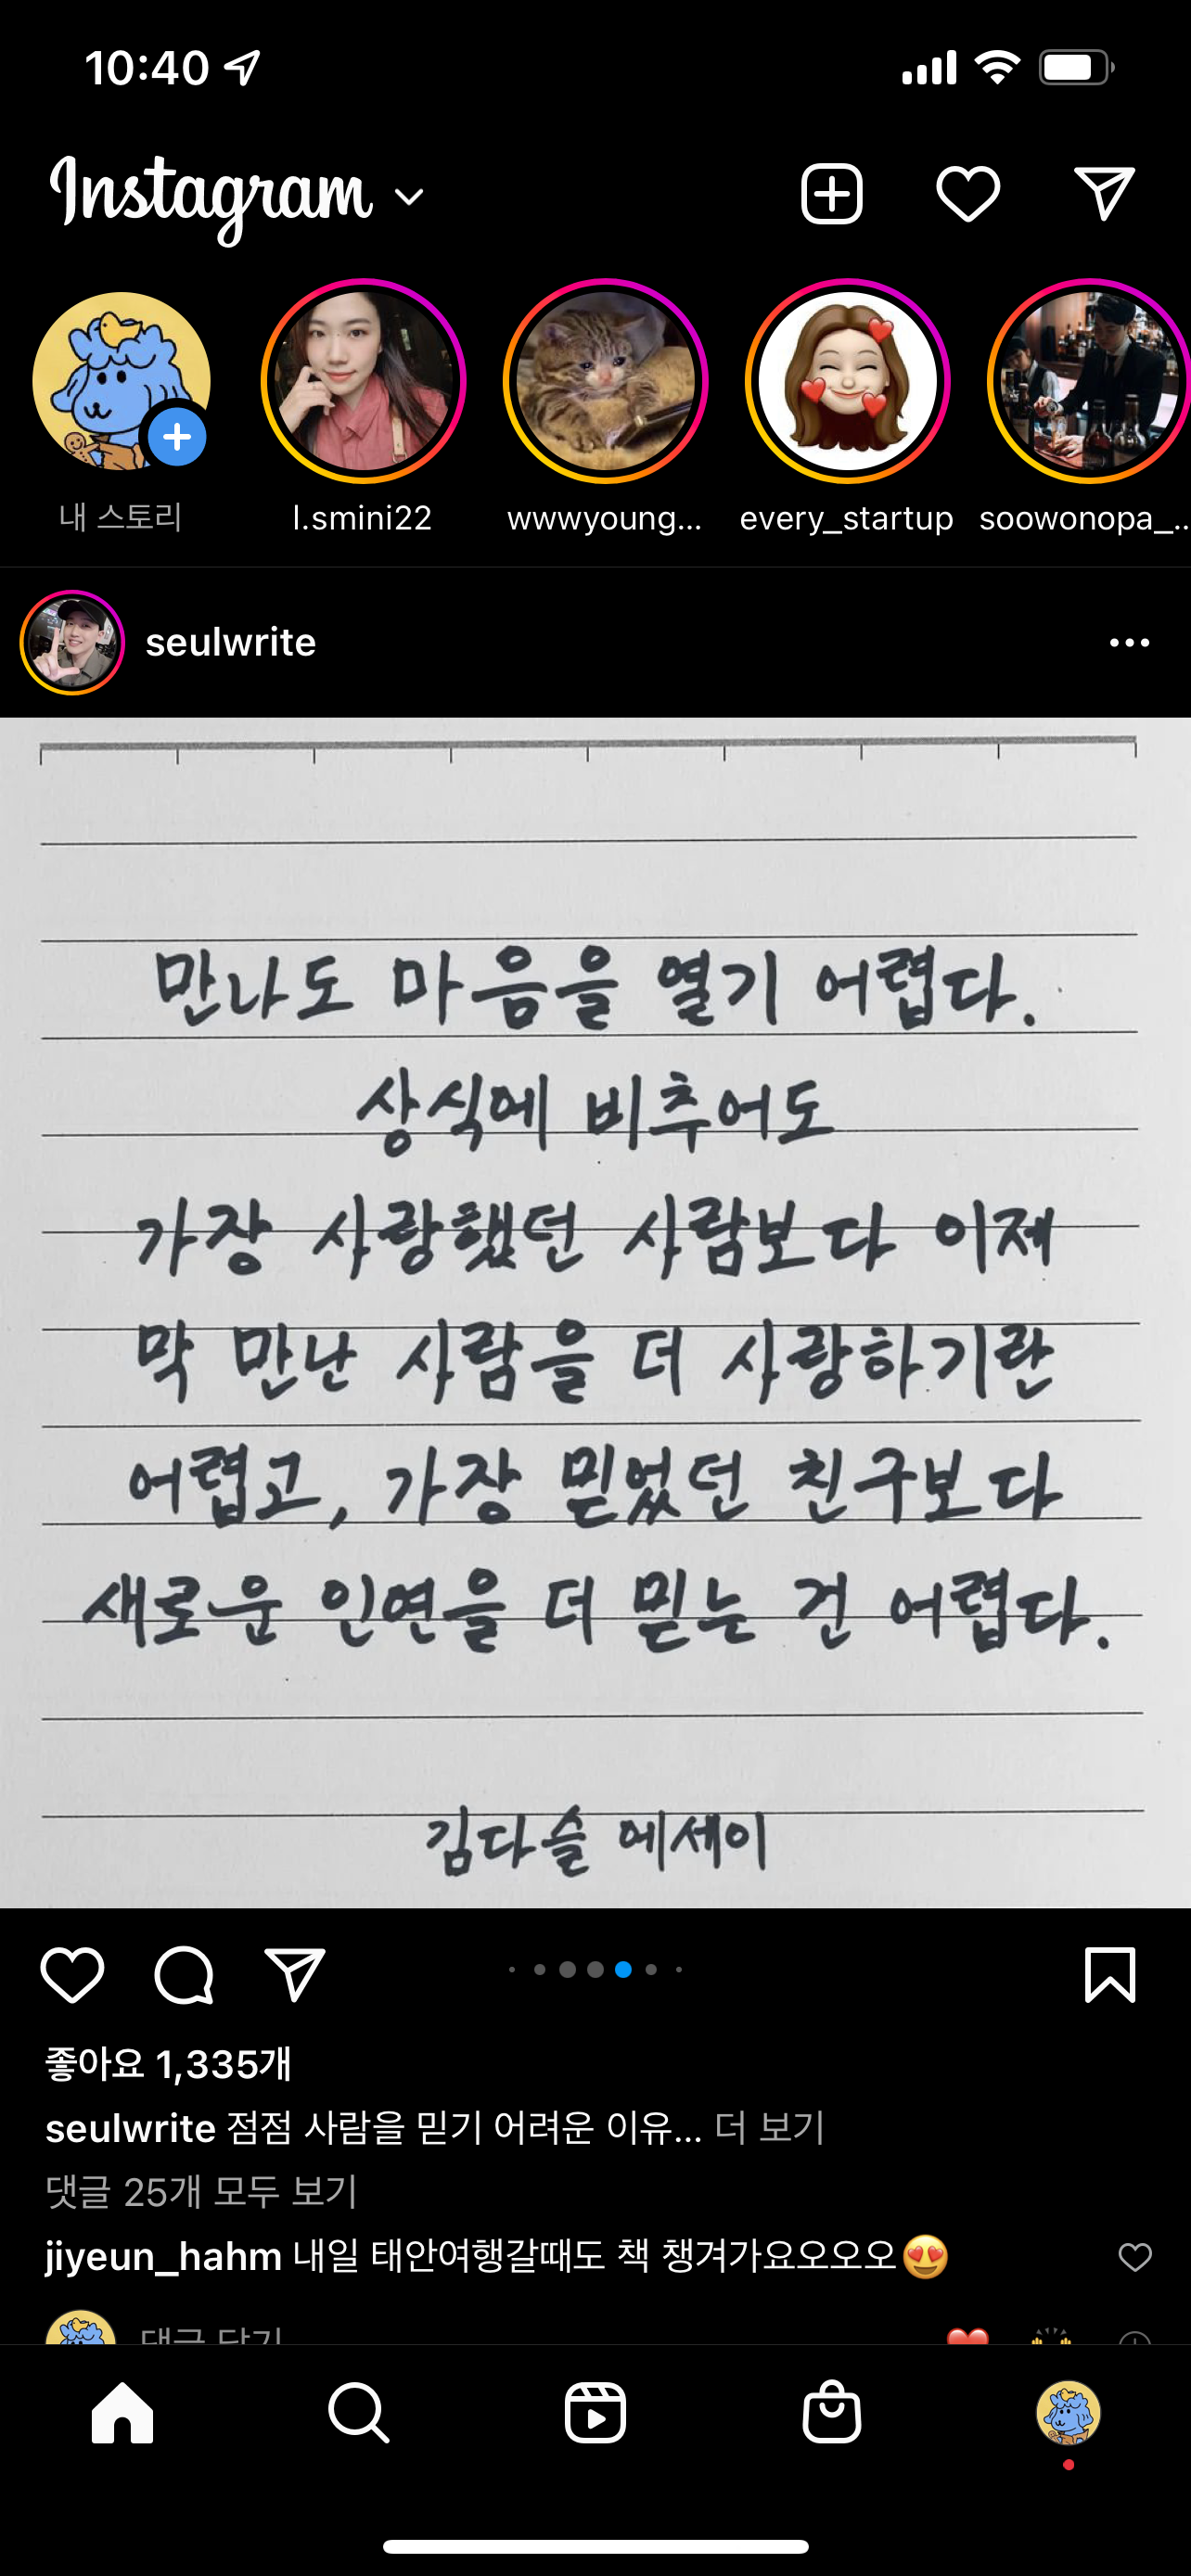 10:40
Instagram
내 스토리
l.smini22
wwwyoung...
every_startup
soowonopa_...
seulwrite
만나도 마음을 열기 어렵다.
상식에 비추어도
가장 사랑했던 사람보다 이제
막 만난 사람을 더 사랑하기란
어렵고, 가장 믿었던 친구보다
새로운 인연을 더 믿는 건 어렵다.
김다슬 에세이
좋아요 1,335개
seulwrite 점점 사람을 믿기 어려운 이유... 더 보기
댓글 25개 모두 보기
jiyeun_hahm 내일 태안여행갈때도 책 챙겨가요오오오😍
댓글 달기